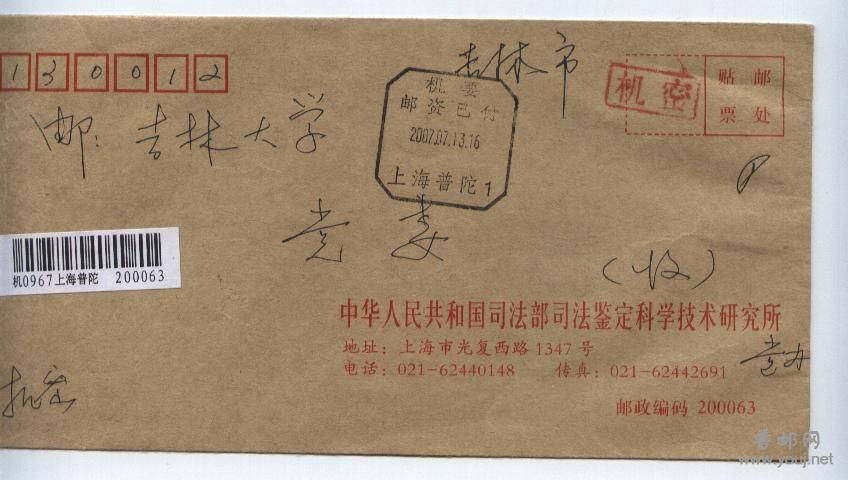 吉林市
130012
机密
贴 邮
票 处
机要
邮资已付
2007.07.13.16
上海普陀1
邮：吉林大学
党委
（收）
机0967上海普陀 200063
中华人民共和国司法部司法鉴定科学技术研究所
地址：上海市光复西路1347号
电话：021-62440148 传真：021-62442691
党办
邮政编码 200063
机密
普邮网
www.youj.net